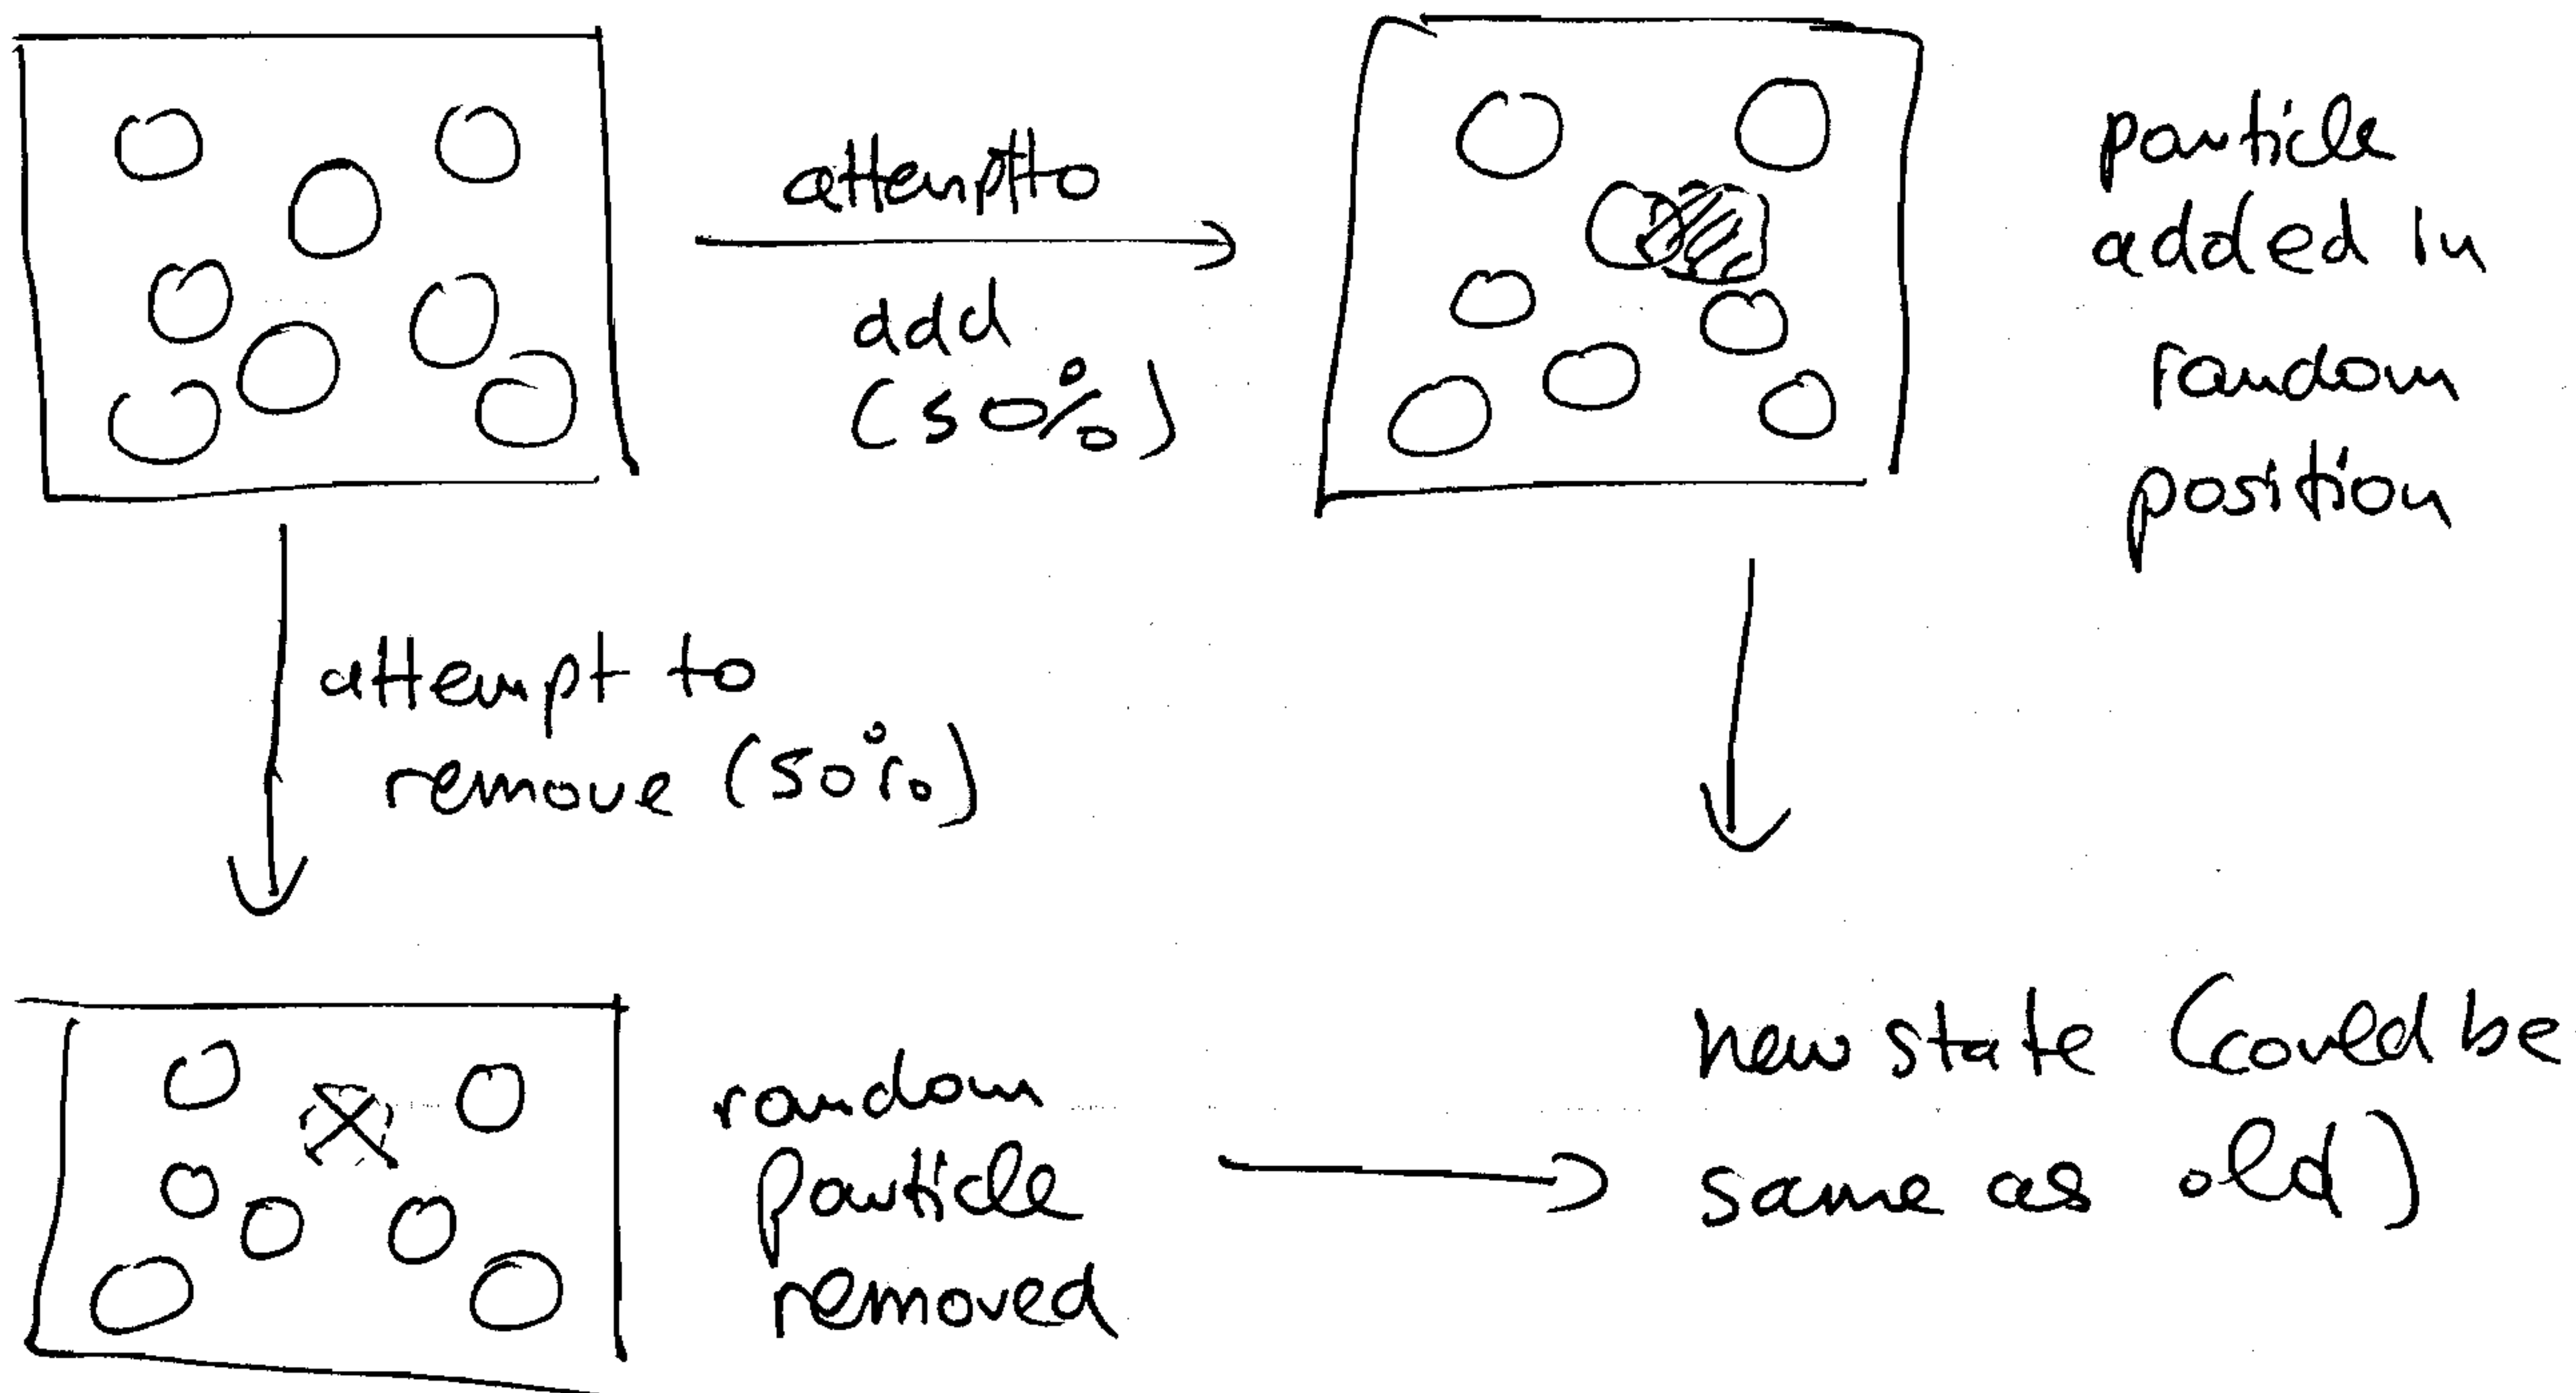 attempt to
add
(50%)
particle
added in
random
position
attempt to
remove (50%)
random
particle
removed
new state (could be
same as old)